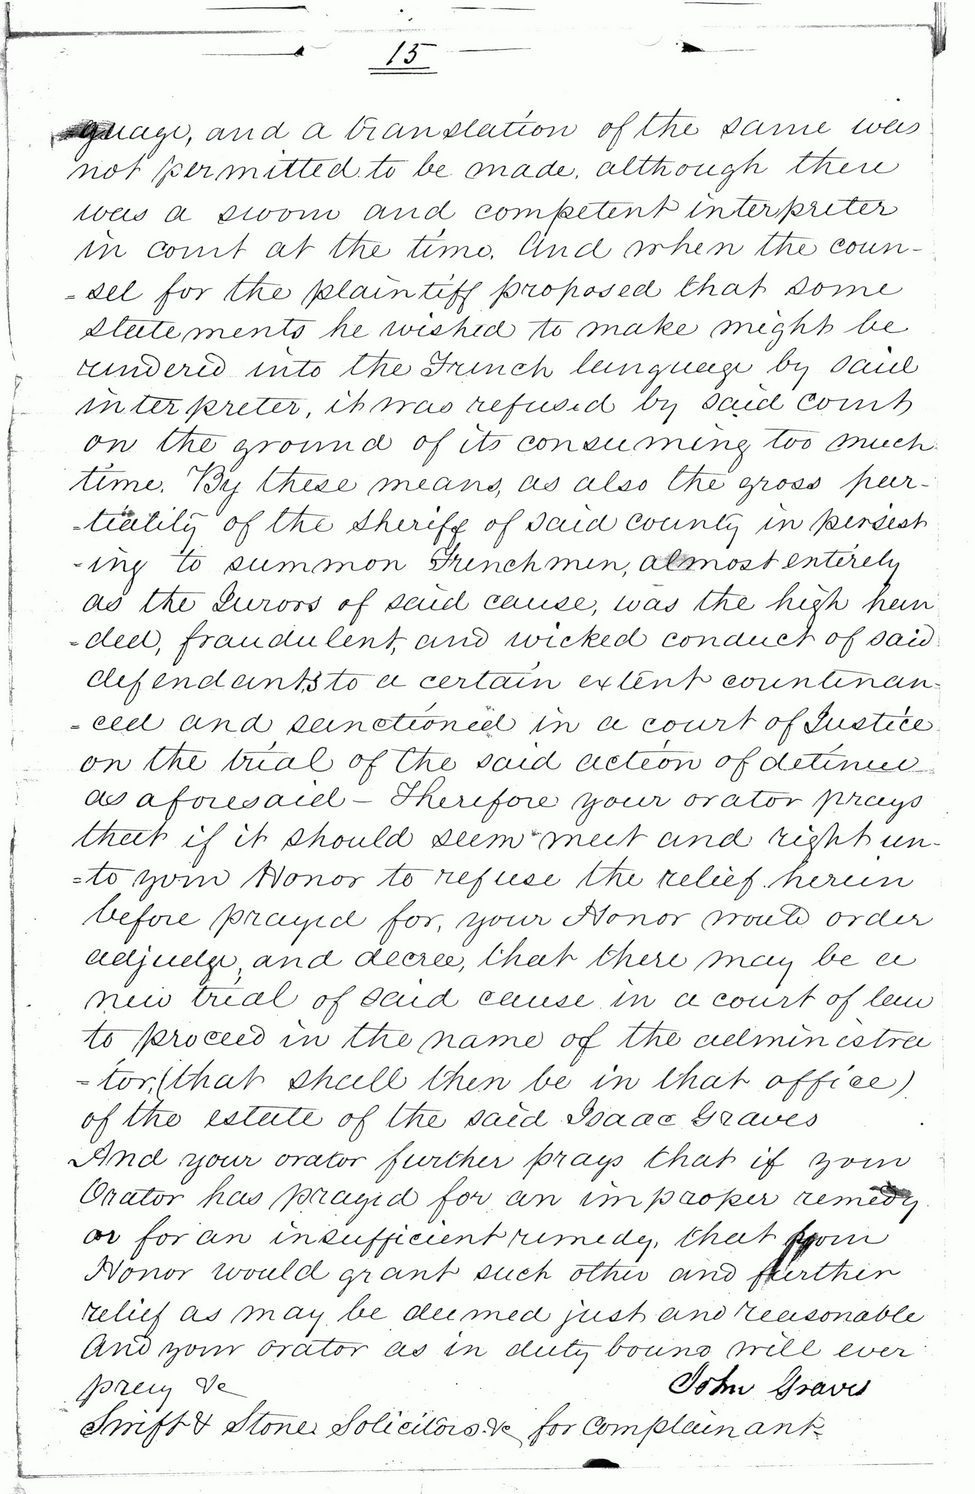 15
guage, and a translation of the same was
not permitted to be made. although there
was a sworn and competent interpreter
in court at the time. And when the coun-
-sel for the plaintiff proposed that some
statements he wished to make might be
rendered into the French language by said
interpreter, it was refused by said court
on the ground of its consuming too much
time. By these means, as also the gross par-
-tiality of the sheriff of said county in persist
-ing to summon Frenchmen, almost entirely
as the Jurors of said cause, was the high han
-ded, fraudulent, and wicked conduct of said
defendants to a certain extent countenan-
-ced and sanctioned in a court of Justice
on the trial of the said action of detinue
as aforesaid - Therefore your orator prays
that if it should seem meet and right un-
-to your Honor to refuse the relief herein
before prayed for, your Honor would order
adjudge, and decree, that there may be a
new trial of said cause in a court of law
to proceed in the name of the administra
-tor, (that shall then be in that office)
of the estate of the said Isaac Graves
And your orator further prays that if your
Orator has prayed for an improper remedy
or for an insufficient remedy, that your
Honor would grant such other and further
relief as may be deemed just and reasonable
And your orator as in duty bound will ever
pray &c John Graves
Swift & Stone Solicitors &c for complainant